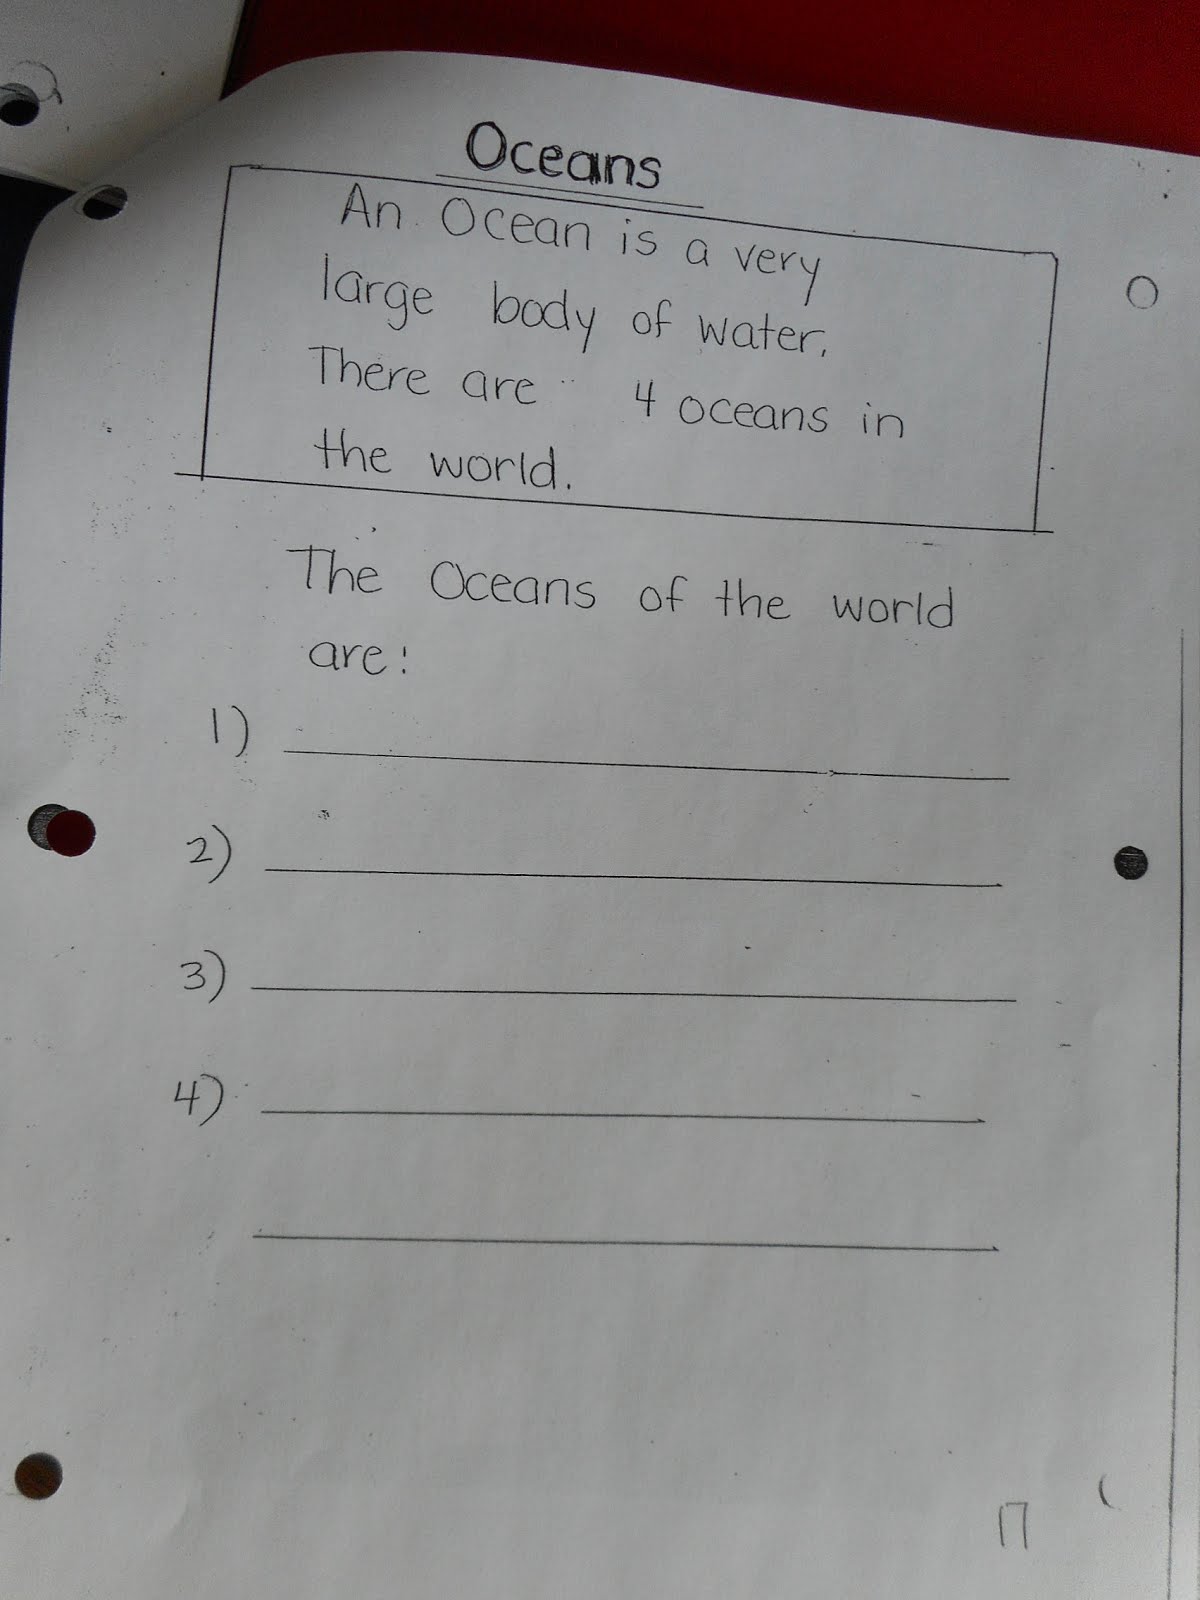 Oceans
An Ocean is a very
large body of water.
There are 4 oceans in
the world.
The Oceans of the world
are:
1)
2)
3)
4)
17